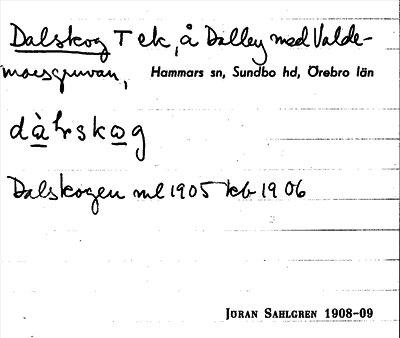 Dalskog T ek, å Dalby med Valde-
marsgruvan, Hammars sn, Sundbo hd, Örebro län
dàl̥skog
Dalskogen ml 1905 kb 1906
JÖRAN SAHLGREN 1908-09